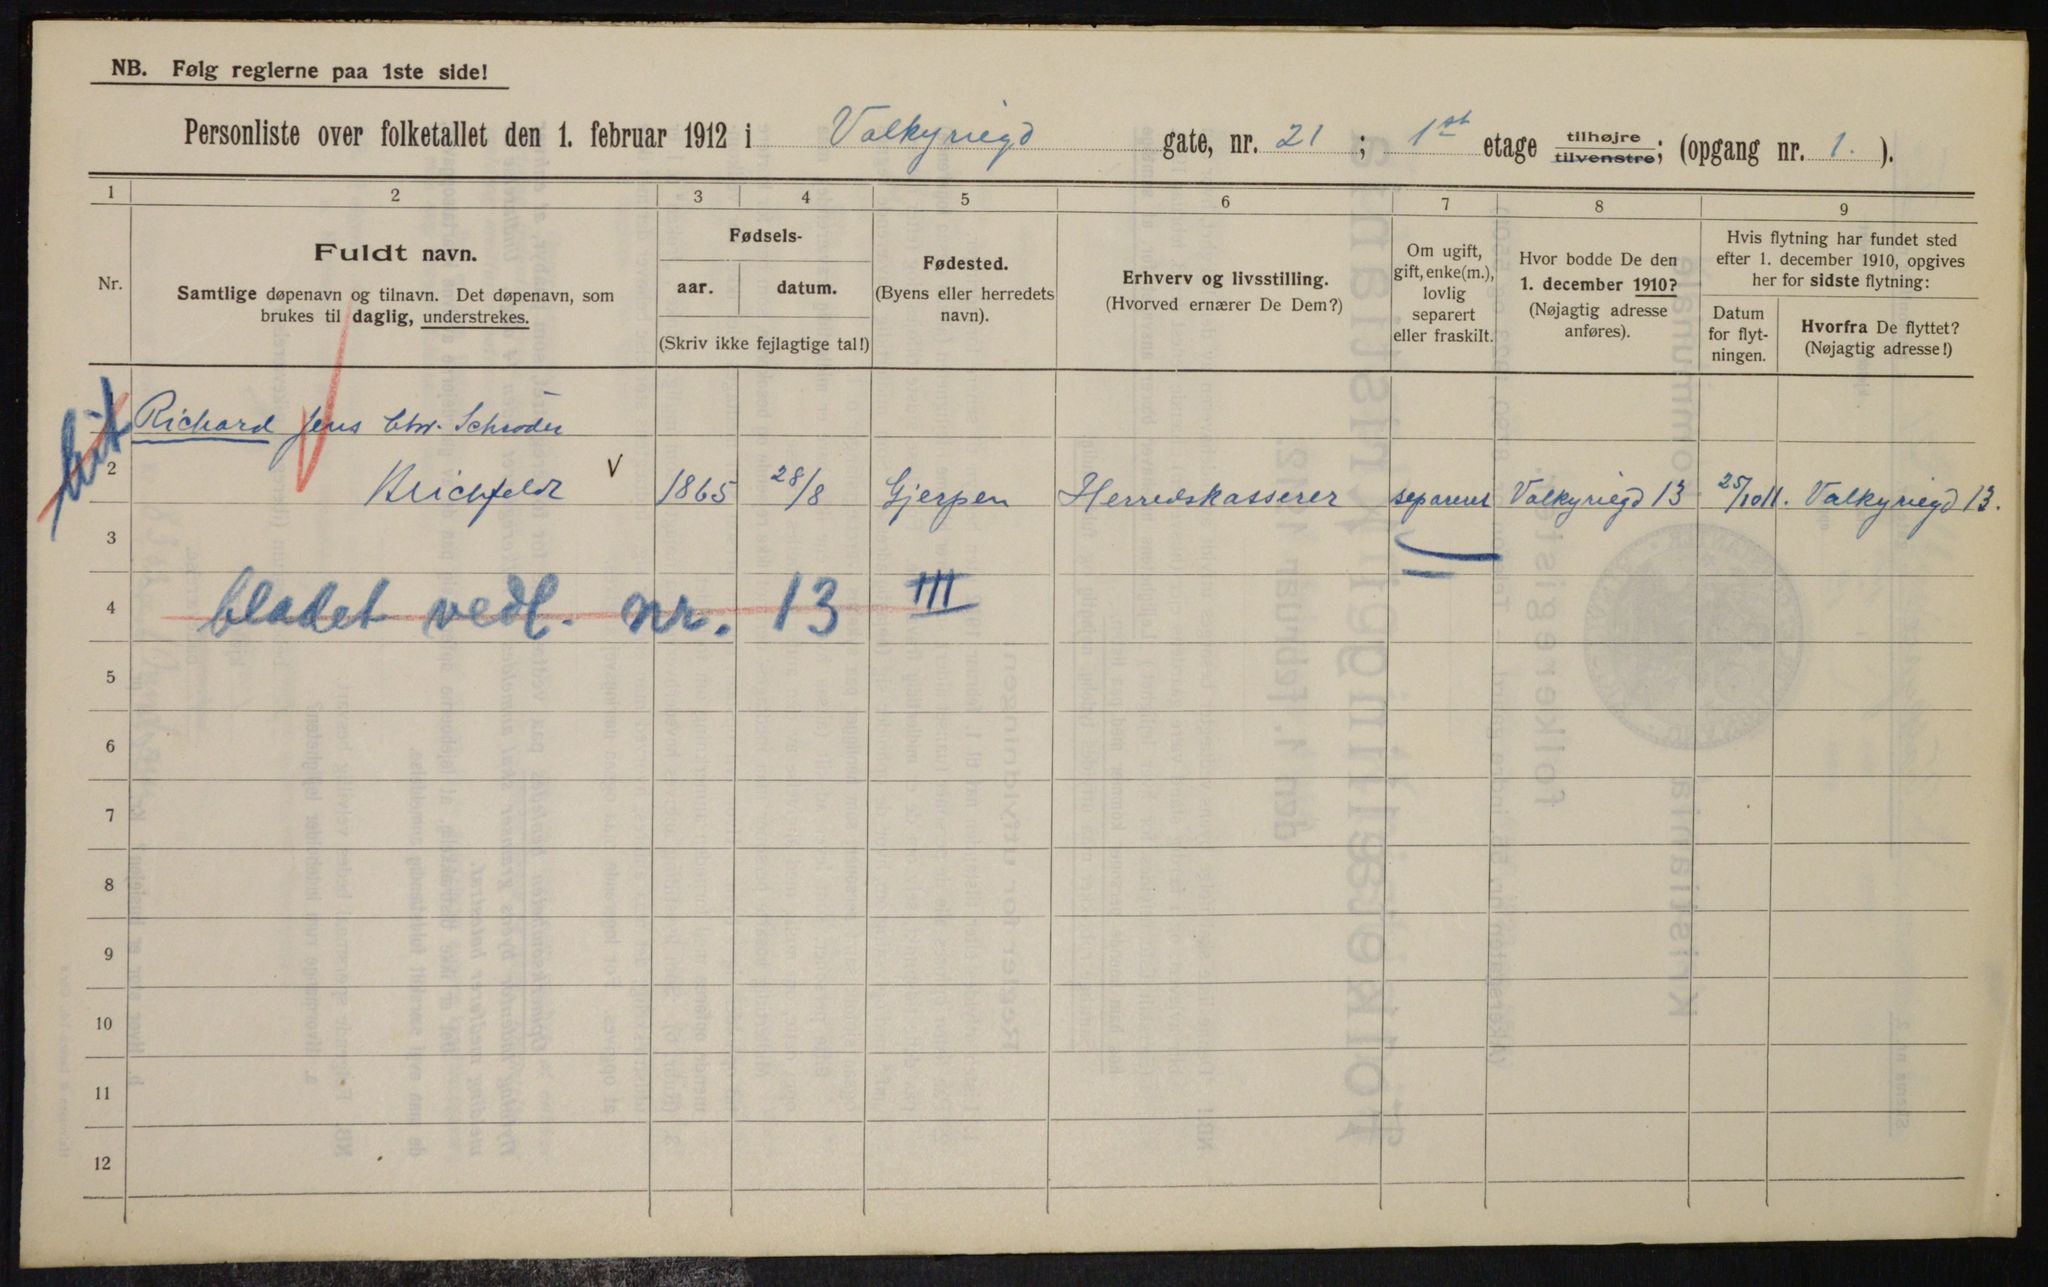 NB. Følg reglerne paa 1ste side!
Personliste over folketallet den 1. februar 1912 i Valkyriegd gate, nr. 21 ; 1st etage tilhøjre tilvenstre; (opgang nr. 1. ).
1 2 3 4 5 6 7 8 9
Nr.
Fuldt navn.
Samtlige døpenavn og tilnavn. Det døpenavn, som
brukes til daglig, understrekes.
Fødsels-
aar. datum.
(Skriv ikke fejlagtige tal!)
Fødested.
(Byens eller herredets
navn).
Erhverv og livsstilling.
(Hvorved ernærer De Dem?)
Om ugift,
gift, enke(m.),
lovlig
separert
eller fraskilt.
Hvor bodde De den
1. december 1910?
(Nøjagtig adresse
anføres).
Hvis flytning har fundet sted
efter 1. december 1910, opgives
her for sidste flytning:
Datum
for flyt-
ningen.
Hvorfra De flyttet?
(Nøjagtig adresse!)
Richard Jens Chr. Schrøder
2 1865 28/8 Gjerpen Herredskasserer separert Valkyriegd 13 25/10 11. Valkyriegd 13.
3
4 bladet vedl. nr. 13 III
5
6
7
8
9
10
11
12